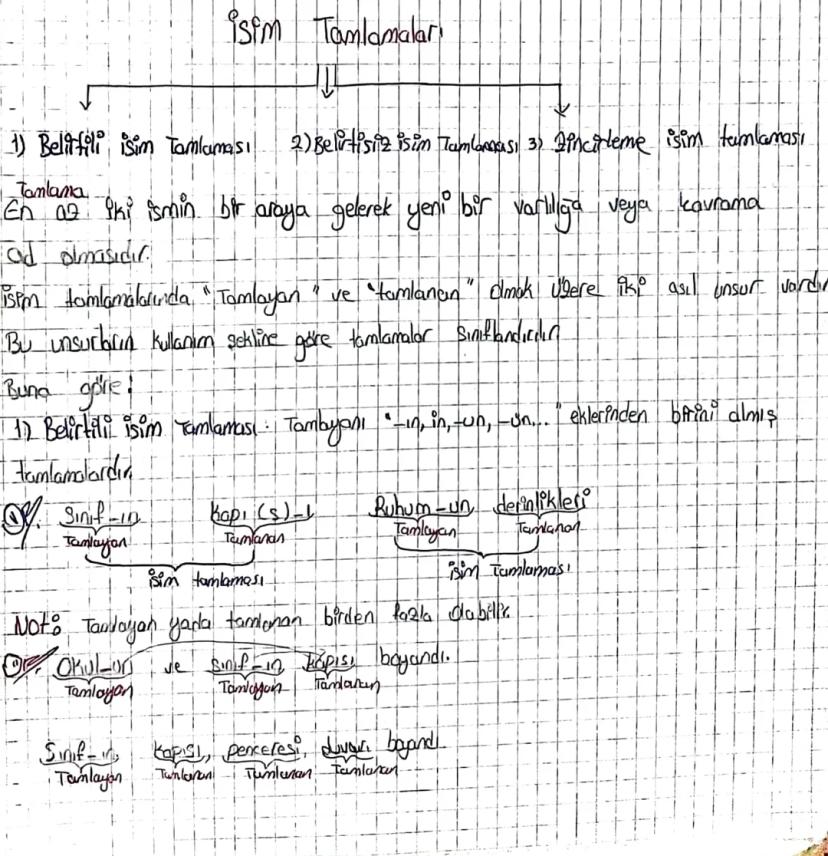 İsim Tamlamaları
1) Belirtili isim Tamlaması 2) Belirtisiz isim Tamlaması 3) Zincirleme isim tamlaması
Tamlama
En az iki ismin bir araya gelerek yeni bir varlığa veya kavrama
ad olmasıdır.
isim tamlamalarında "Tamlayan" ve "tamlanan" olmak üzere iki asıl unsur vardır
Bu unsurların kullanım şekline göre tamlamalar sınıflandırılır
Buna göre;
1) Belirtili isim Tamlaması: Tamlayanı "-ın, in, -un, -ün..." eklerinden birini almış
tamlamalardır.
Sınıf-ın Kapı (s)-ı Ruhum-un derinlikleri
Tamlayan Tamlanan Tamlayan Tamlanan
isim tamlaması isim Tamlaması
Not: Tamlayan yada tamlanan birden fazla olabilir.
Okul-un ve sınıf-ın kapısı boyandı.
Tamlayan Tamlayan Tamlanan
Sınıf-ın kapısı, penceresi, duvarı boyandı
Tamlayan Tamlanan Tamlanan Tamlanan